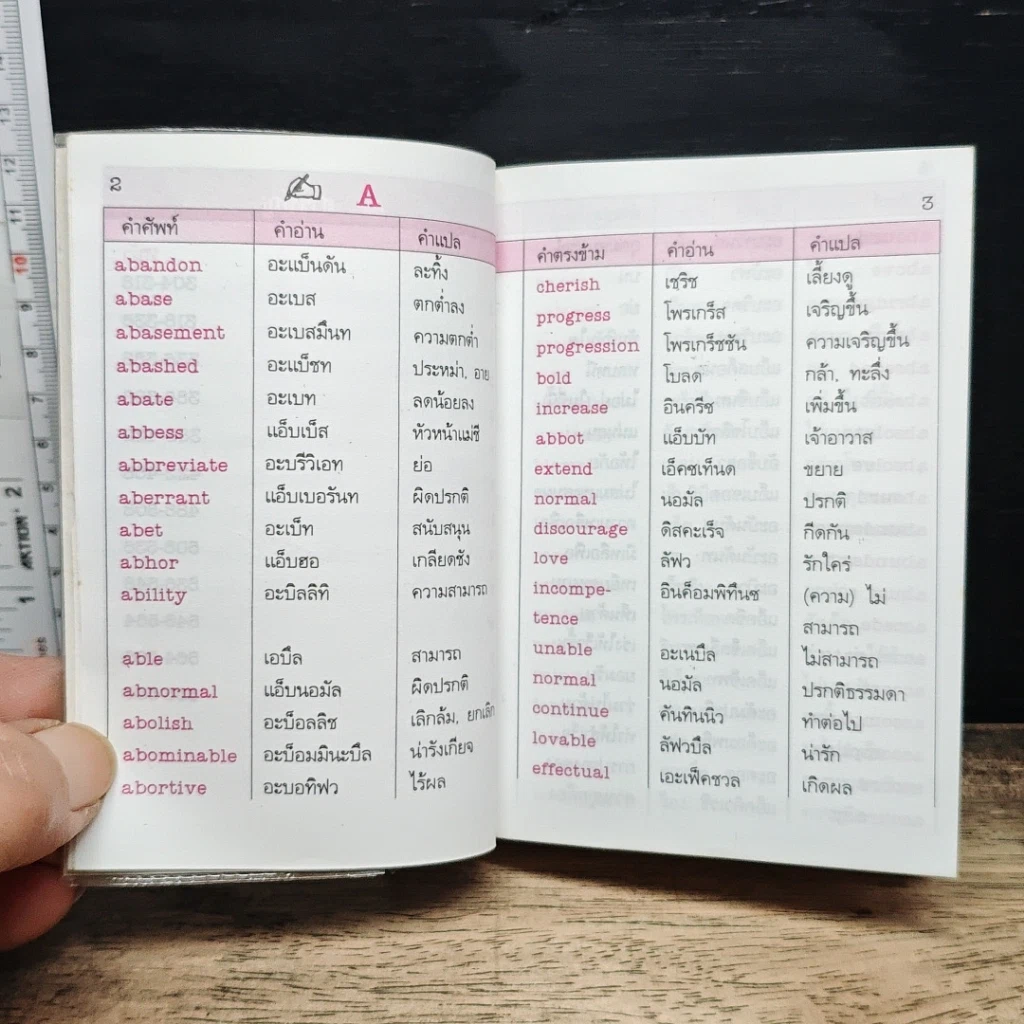 2 A
คำศัพท์ คำอ่าน คำแปล
abandon อะแบ็นดัน ละทิ้ง
abase อะเบส ตกต่ำลง
abasement อะเบสมึนท ความตกต่ำ
abashed อะแบ็ชท ประหม่า, อาย
abate อะเบท ลดน้อยลง
abbess แอ็บเบ็ส หัวหน้าแม่ชี
abbreviate อะบรีวิเอท ย่อ
aberrant แอ็บเบอรันท ผิดปรกติ
abet อะเบ็ท สนับสนุน
abhor แอ็บฮอ เกลียดชัง
ability อะบิลลิทิ ความสามารถ
able เอบึล สามารถ
abnormal แอ็บนอมัล ผิดปรกติ
abolish อะบ็อลลิช เลิกล้ม, ยกเลิก
abominable อะบ็อมมินะบึล น่ารังเกียจ
abortive อะบอทิฟว ไร้ผล
3
คำตรงข้าม คำอ่าน คำแปล
cherish เชริช เลี้ยงดู
progress โพรเกร็ส เจริญขึ้น
progression โพรเกร็ชชัน ความเจริญขึ้น
bold โบลด กล้า, ทะลึ่ง
increase อินครีซ เพิ่มขึ้น
abbot แอ็บบัท เจ้าอาวาส
extend เอ็คซเท็นด ขยาย
normal นอมัล ปรกติ
discourage ดิสคะเร็จ กีดกัน
love ลัฟว รักใคร่
incompe- อินค็อมพิทึนซ (ความ) ไม่
tence สามารถ
unable อะเนบึล ไม่สามารถ
normal นอมัล ปรกติธรรมดา
continue คันทินนิว ทำต่อไป
lovable ลัฟวบึล น่ารัก
effectual เอะเฟ็คชวล เกิดผล